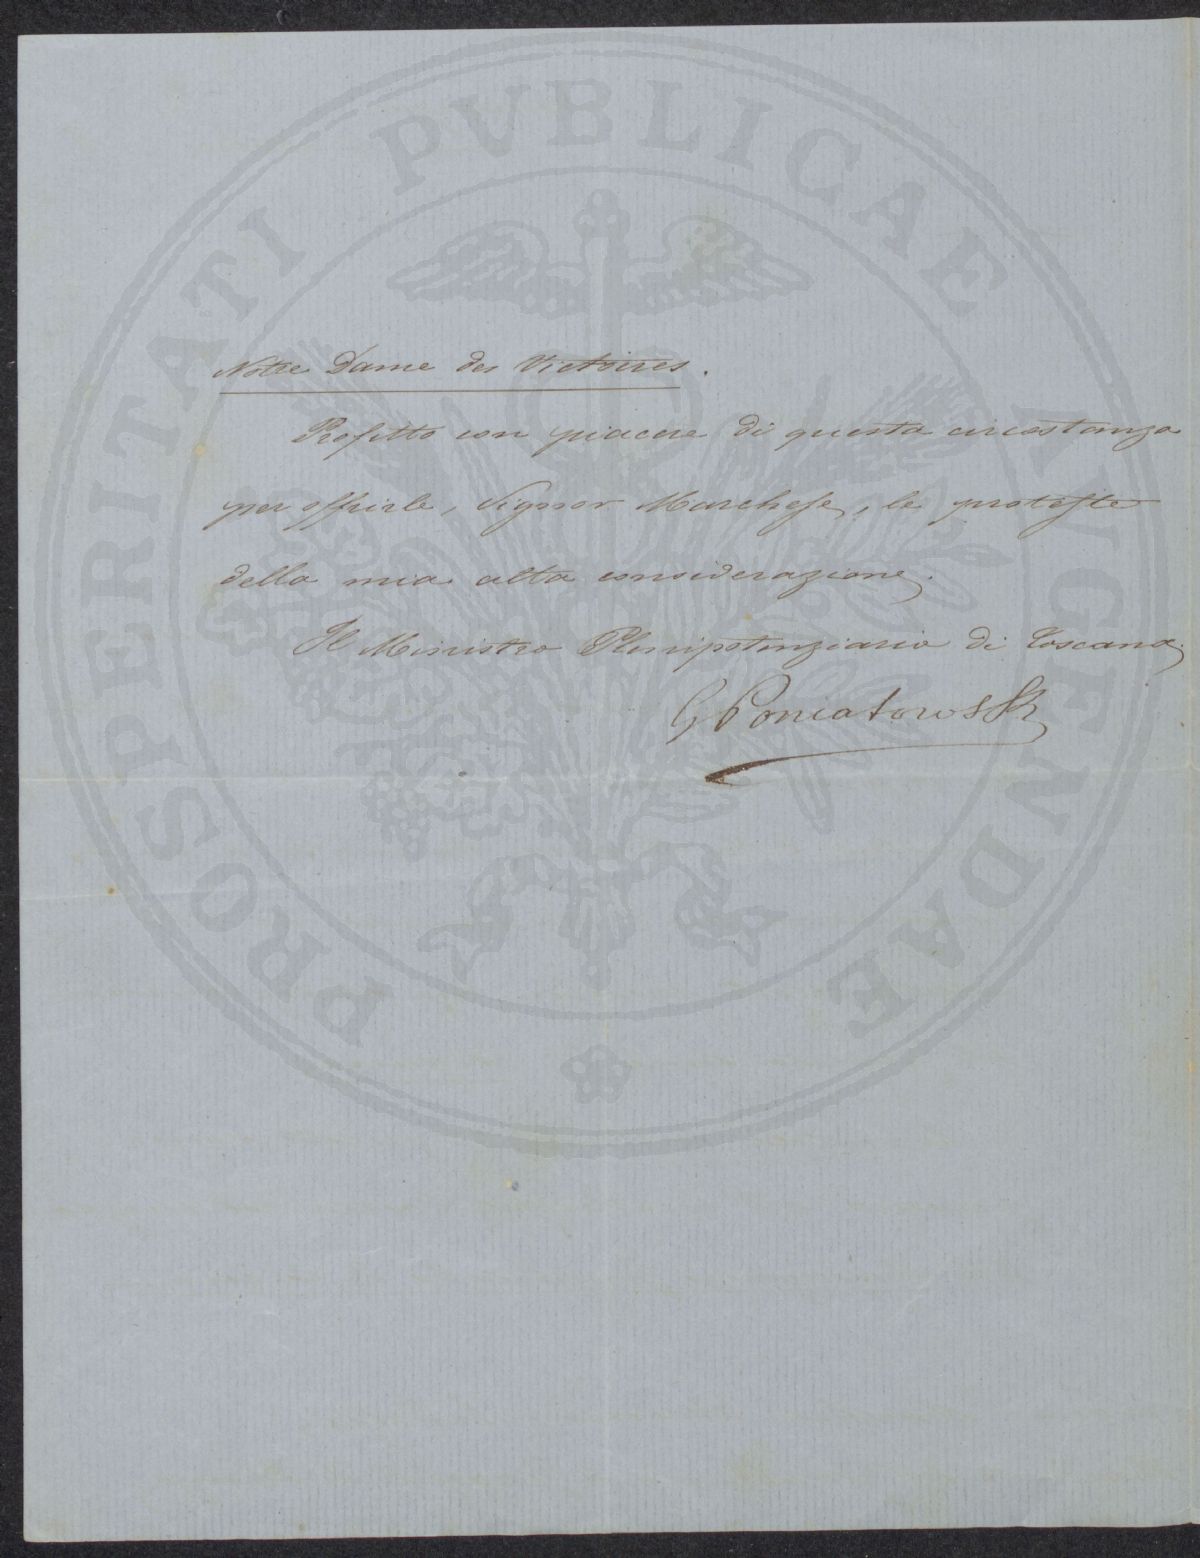 Notre Dame des Victoires.
Profitto con piacere di questa circostanza
per offrirle, Signor Marchese, le proteste
della mia alta considerazione.
Il Ministro Plenipotenziario di Toscana.
G Poniatowski
PROSPERITATI PVBLICAE AVGENDAE